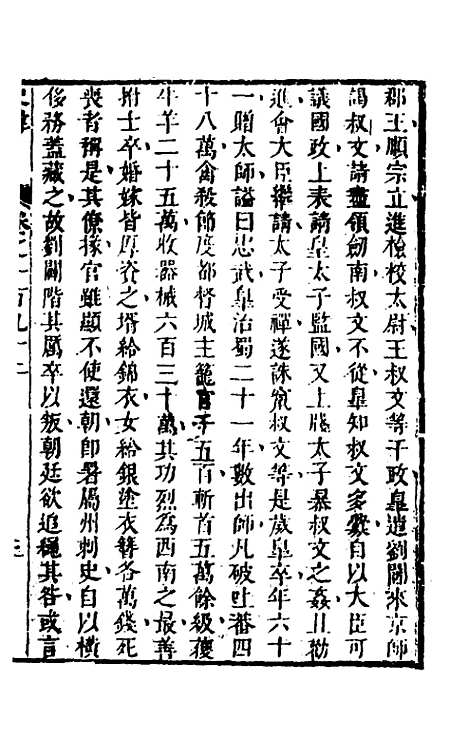 郡王順宗立進檢校太尉王叔文等干政皐遣劉闢來京師
謁叔文請盡領劒南叔文不從皐知叔文多釁自以大臣可
議國政上表請皇太子監國又上牋太子暴叔文之姦且勸
進會大臣繼請太子受禪遂誅竄叔文等是歲皐卒年六十
一贈太師謚曰忠武皐治蜀二十一年數出師凡破吐蕃四
十八萬禽殺節度都督城主籠官千五百斬首五萬餘級獲
牛羊二十五萬收器械六百三十萬其功烈爲西南之最善
拊士卒婚嫁皆厚資之壻給錦衣女給銀塗衣賻各萬錢死
喪者稱是其僚掾官雖顯不使還朝卽署屬州刺史自以橫
侈務蓋藏之故劉闢階其厲卒以叛朝廷欲追繩其咎或言
卷之一百九十二